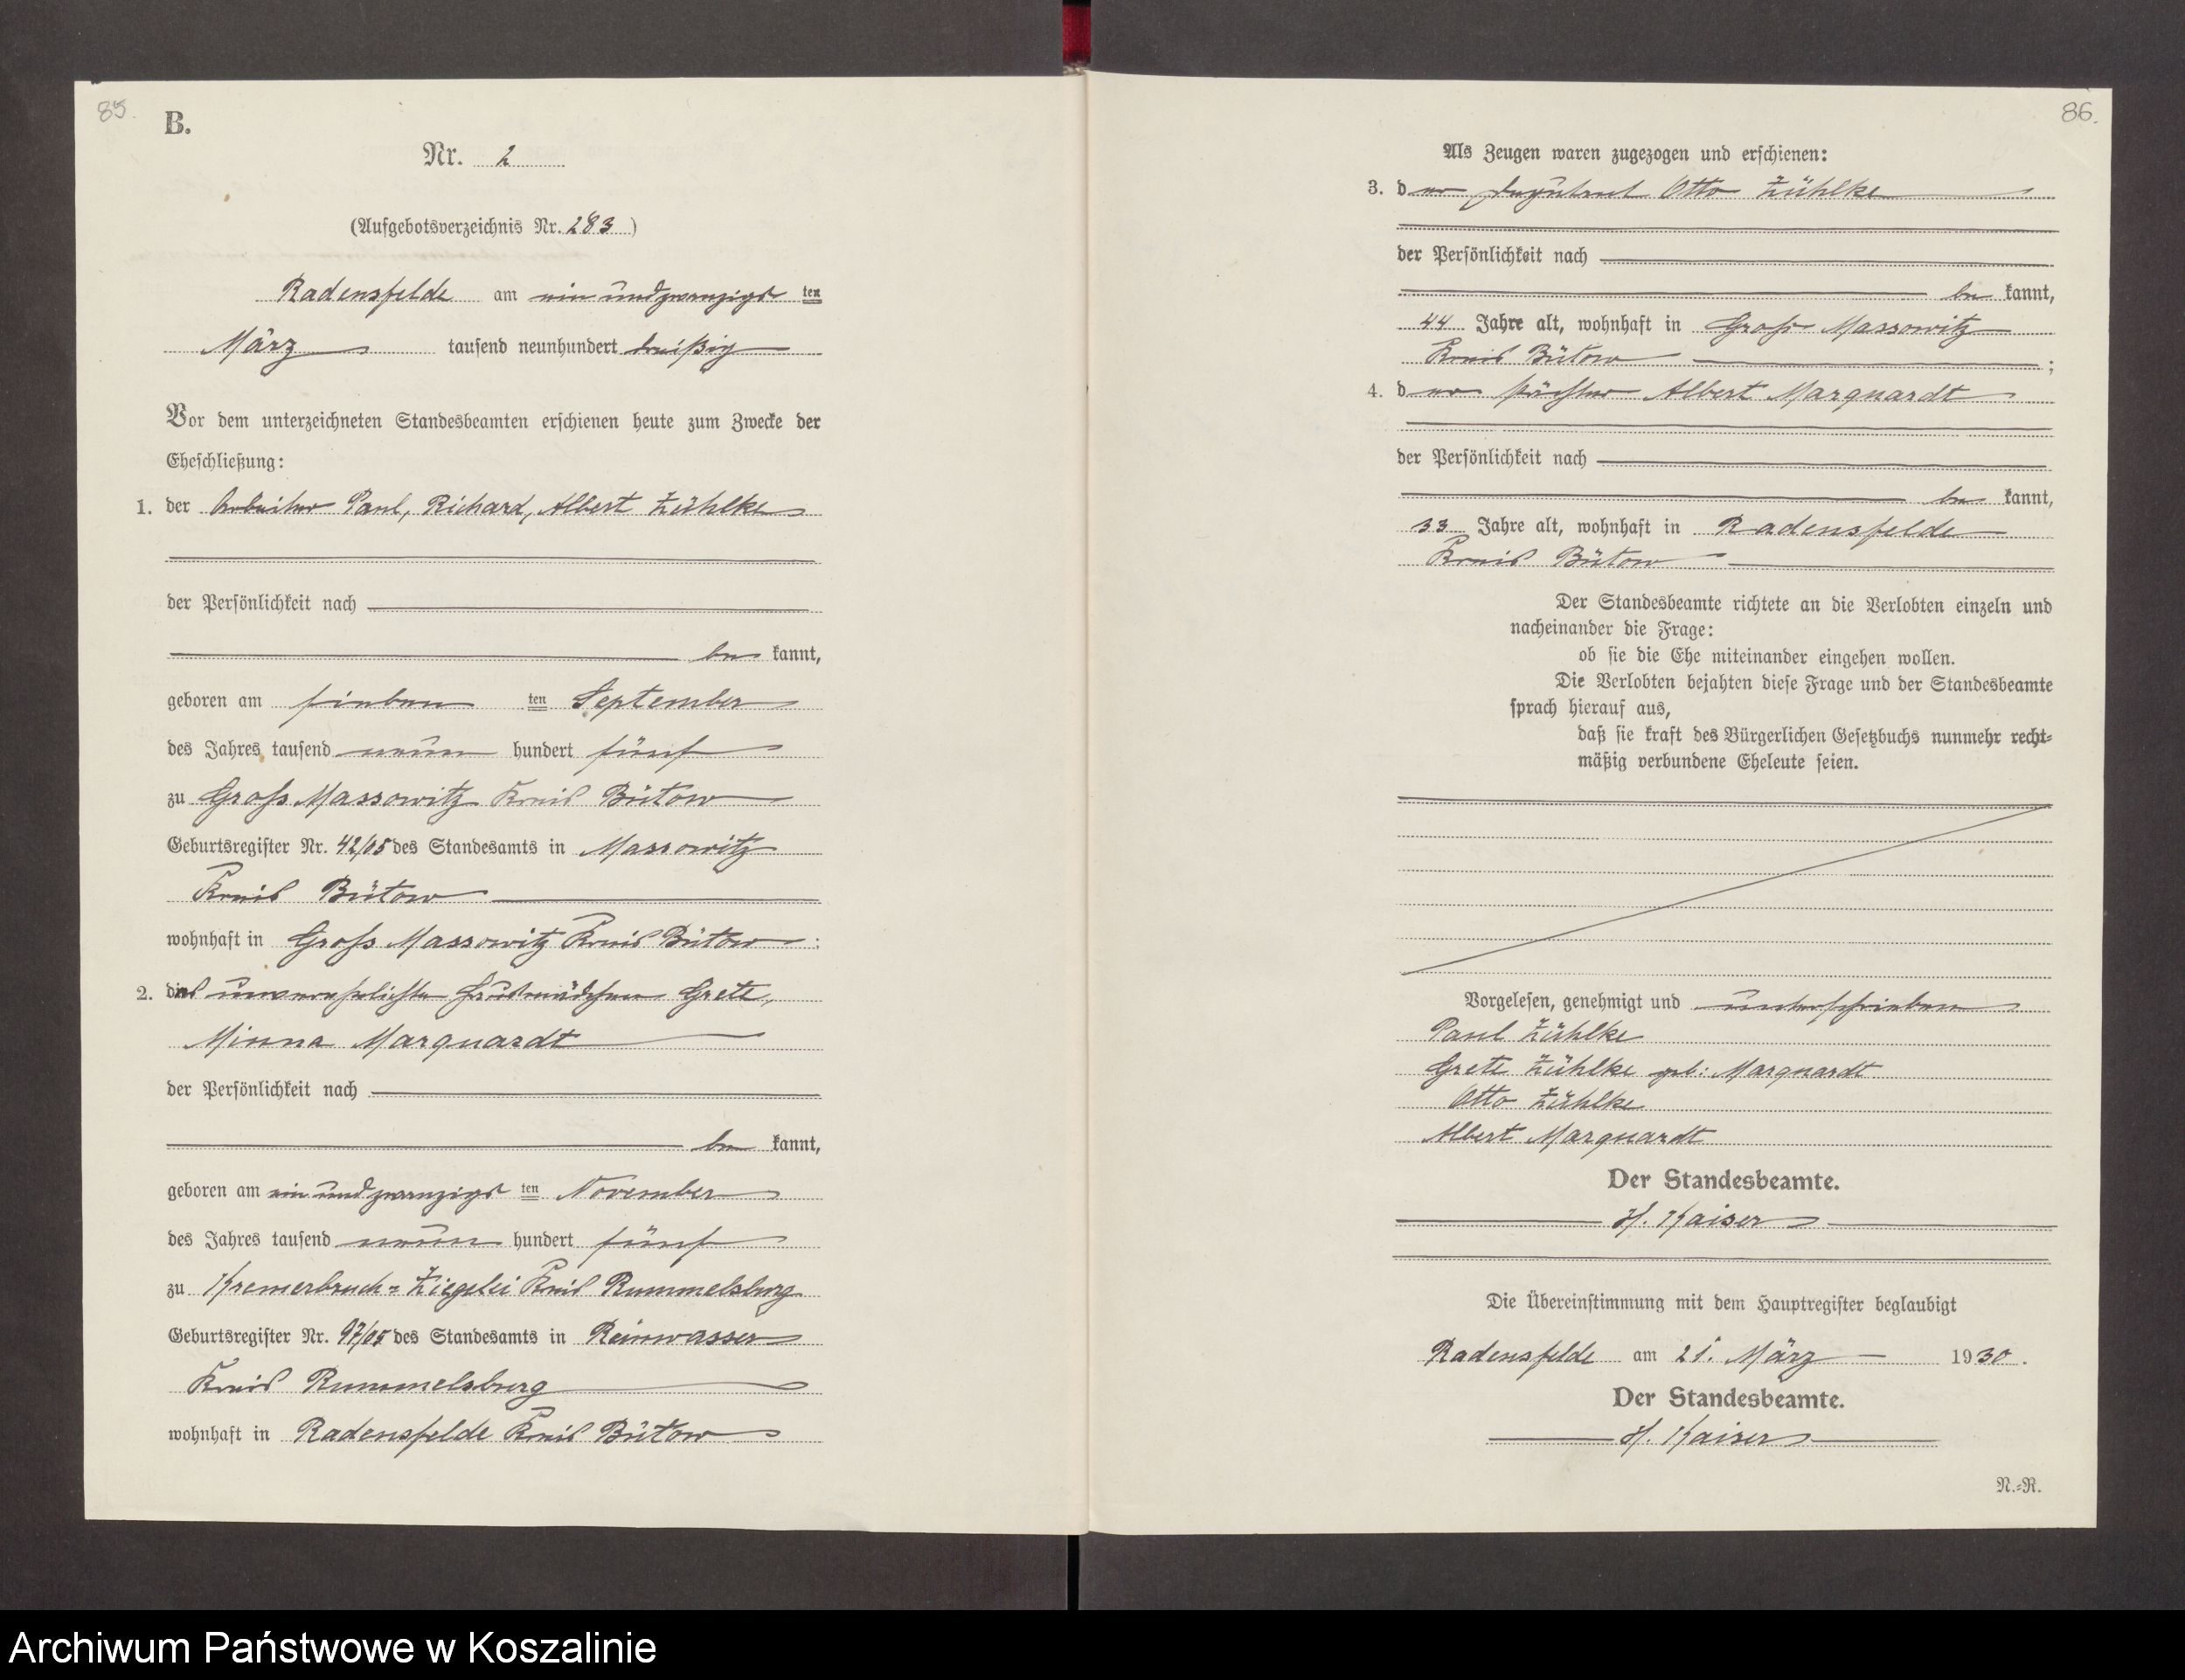 85.
B.
Nr. 2
(Aufgebotsverzeichnis Nr. 283)
Radensfelde am ein und zwanzigst ten
März tausend neunhundert dreißig
Vor dem unterzeichneten Standesbeamten erschienen heute zum Zwecke der
Eheschließung:
1. der Arbeiter Paul, Richard, Albert Zühlke
der Persönlichkeit nach
be kannt,
geboren am sieben ten September
des Jahres tausend neun hundert fünf
zu Groß Massowitz Kreis Bütow
Geburtsregister Nr. 42/05 des Standesamts in Massowitz
Kreis Bütow
wohnhaft in Groß Massowitz Kreis Bütow;
2. die unverehelichte Grete,
Minna Marquardt
der Persönlichkeit nach
be kannt,
geboren am ein und zwanzigst ten November
des Jahres tausend neun hundert fünf
zu Kremerbruch-Ziegelei Kreis Rummelsburg
Geburtsregister Nr. 97/05 des Standesamts in Reinwasser
Kreis Rummelsburg
wohnhaft in Radensfelde Kreis Bütow
86.
Als Zeugen waren zugezogen und erschienen:
3. der Otto Zühlke
der Persönlichkeit nach
be kannt,
44 Jahre alt, wohnhaft in Groß Massowitz
Kreis Bütow;
4. der Pächter Albert Marquardt
der Persönlichkeit nach
be kannt,
33 Jahre alt, wohnhaft in Radensfelde
Kreis Bütow
Der Standesbeamte richtete an die Verlobten einzeln und
nacheinander die Frage:
ob sie die Ehe miteinander eingehen wollen.
Die Verlobten bejahten diese Frage und der Standesbeamte
sprach hierauf aus,
daß sie kraft des Bürgerlichen Gesetzbuchs nunmehr recht-
mäßig verbundene Eheleute seien.
Vorgelesen, genehmigt und unterschrieben
Paul Zühlke
Grete Zühlke geb: Marquardt
Otto Zühlke
Albert Marquardt
Der Standesbeamte.
H. Kaiser
Die Übereinstimmung mit dem Hauptregister beglaubigt
Radensfelde am 21. März 1930.
Der Standesbeamte.
H. Kaiser
N.-R.
Archiwum Państwowe w Koszalinie